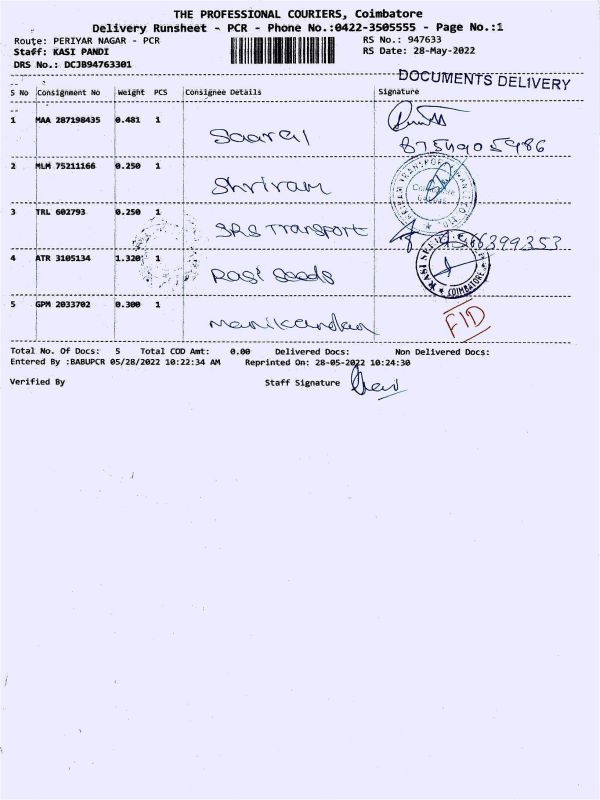 THE PROFESSIONAL COURIERS, Coimbatore
Delivery Runsheet - PCR - Phone No.:0422-3505555 - Page No.:1
Route: PERIYAR NAGAR - PCR RS No.: 947633
Staff: KASI PANDI RS Date: 28-May-2022
DRS No.: DCJB94763301
DOCUMENTS DELIVERY
S No Consignment No Weight PCS Consignee Details Signature
1 MAA 287198435 0.481 1 Saaral
8754905986
2 MLM 75211166 0.250 1 Shriram
3 TRL 602793 0.250 1 SRS Transport
4 ATR 3105134 1.320 1 Rasi Seeds
RASI SEEDS COIMBATORE
5 GPM 2033702 0.300 1 Manikandan
FID
Total No. Of Docs: 5 Total COD Amt: 0.00 Delivered Docs: Non Delivered Docs:
Entered By :BABUPCR 05/28/2022 10:22:34 AM Reprinted On: 28-05-2022 10:24:30
Verified By Staff Signature